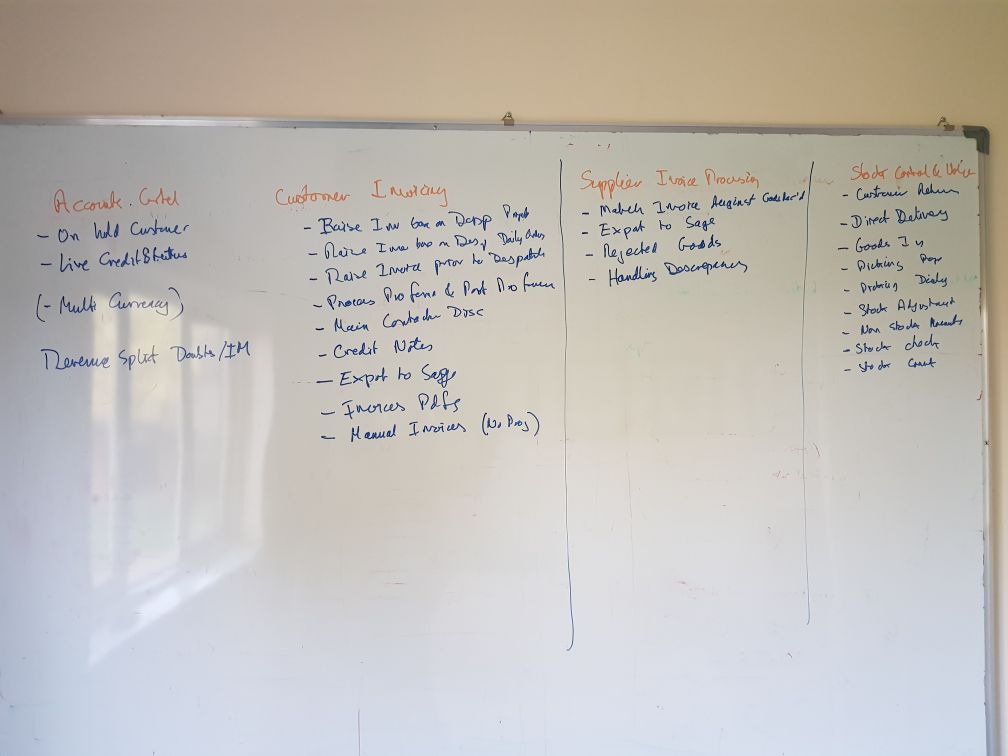 Accounts
- On hold Customer
- Live Credit Status
(- Multi Currency)
Revenue Split Doubts/IM
Customer Invoicing
- Raise Inv on Desp
- Raise Inv on Desp Daily
- Raise Invoice prior to Despatch
- Process Pro forma & Part Pro forma
- Main Contractor Disc
- Credit Notes
- Export to Sage
- Invoices Pdfs
- Manual Invoices (No Proj)
Supplier Invoice Processing
- Match Invoice Against Goods
- Export to Sage
- Rejected Goods
- Handling Descrepency
Stock Control &
- Customer Return
- Direct Delivery
- Goods In
- Picking
- Picking
- Stock Adjustment
- Non Stock
- Stock check
- Stock Count